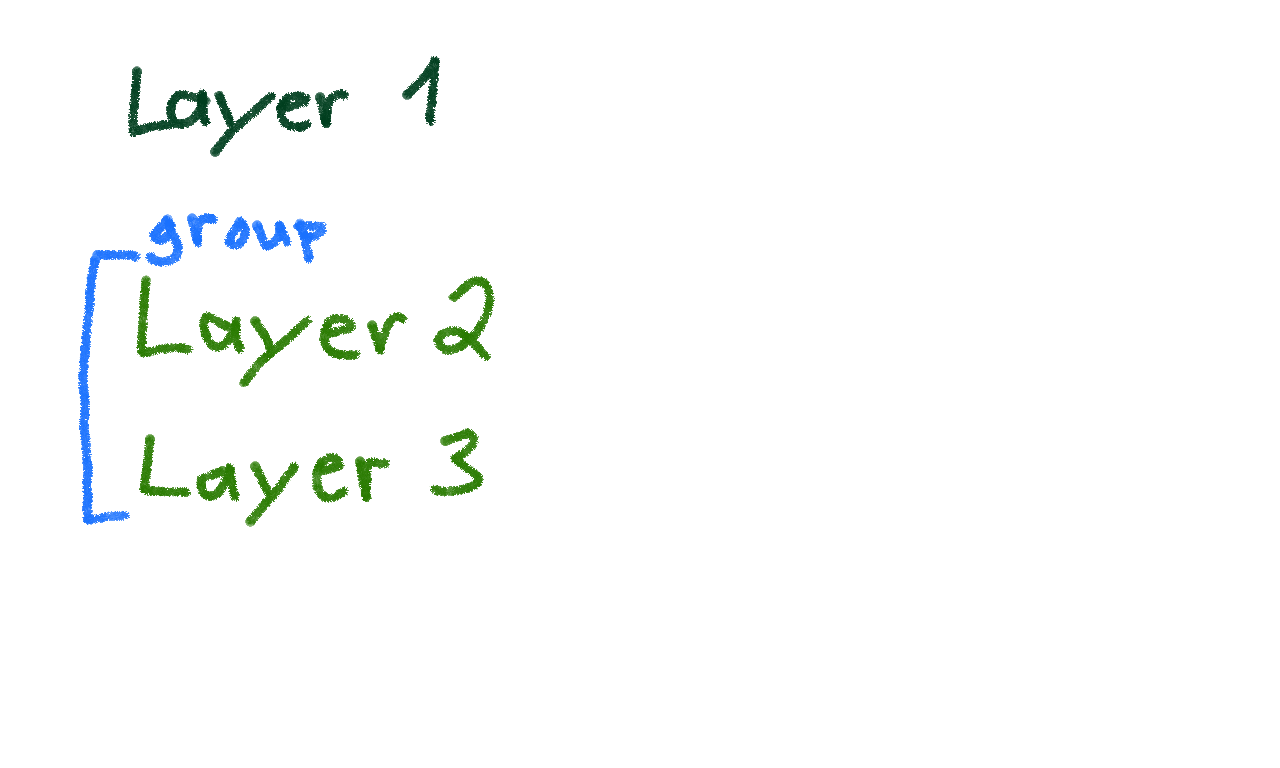 Layer 1
group
Layer 2
Layer 3